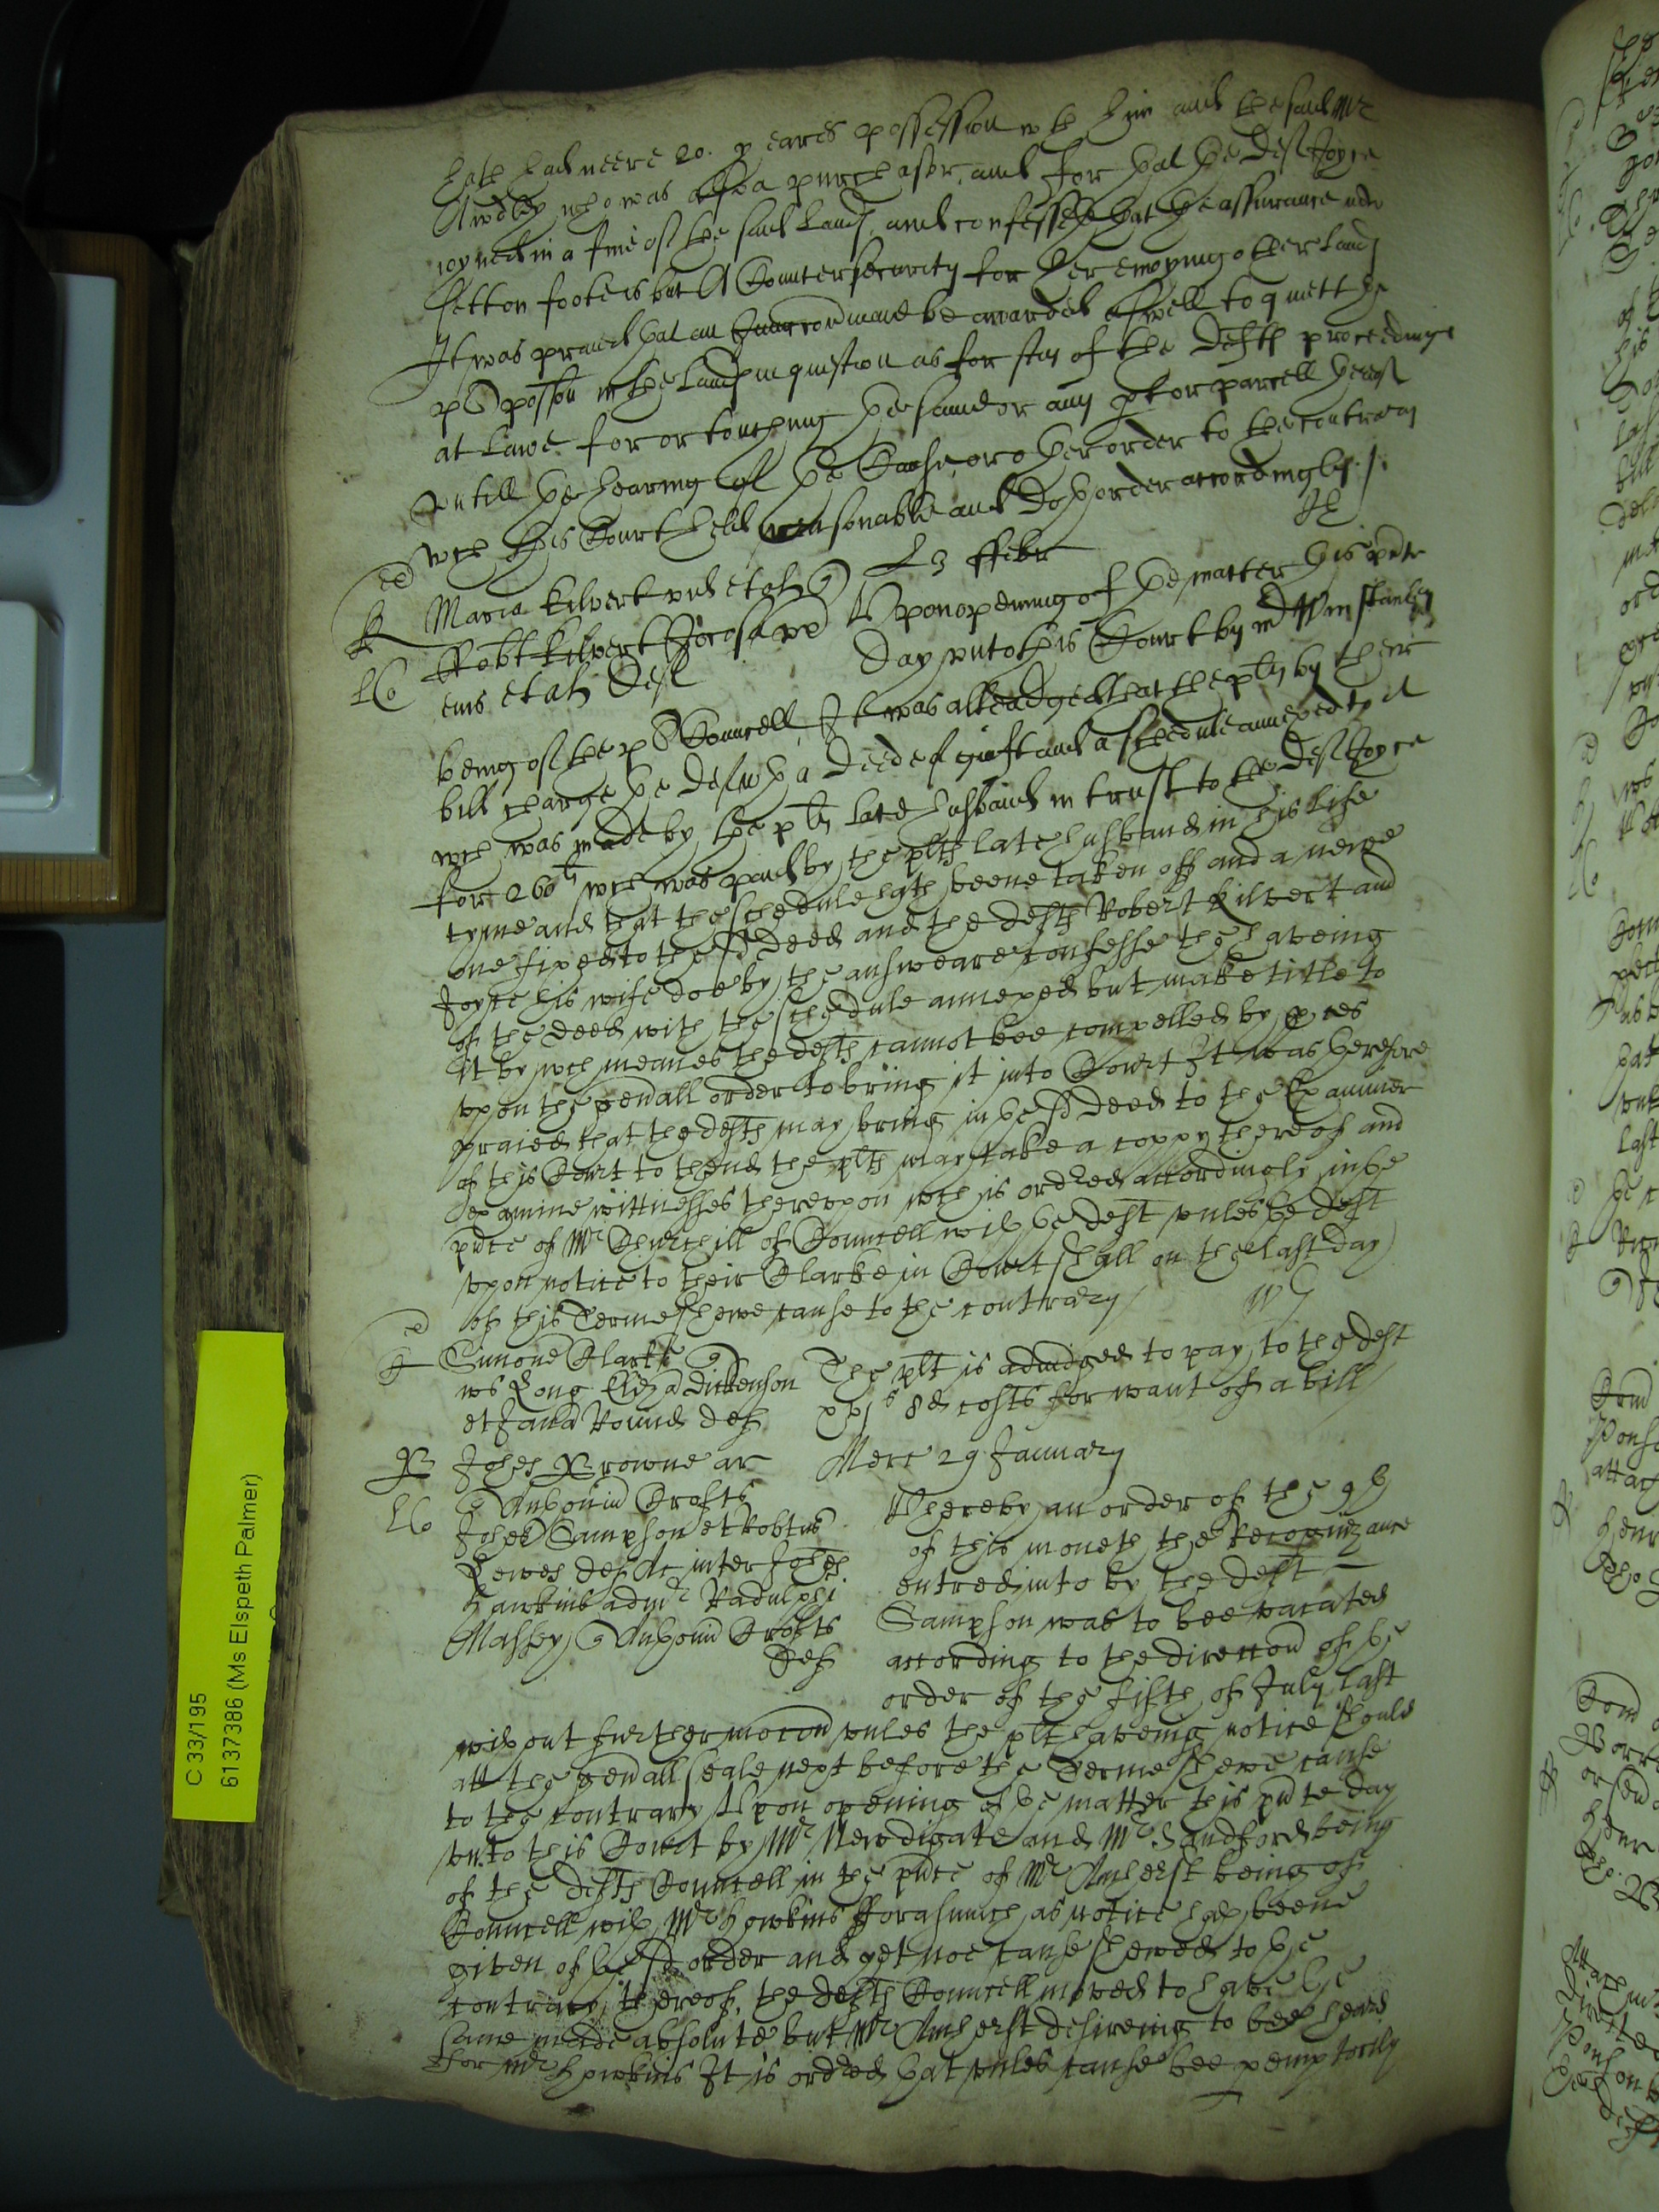 hath had neere 20. yeares possession wth him and the said Mr
Awdley who was also a purchasor, and for that the Deft Joyce
joyned in a fine of the said Lands, and confesseth that the assurance now
sett on foote is but A Countersecurity for her enioying other Lands
It was praied that an Iniunccon maie be awarded aswell to quiett the
plts possion in the Lands in question as for stay of the Defts proceedings
at Lawe for or touching the same or any pt or parcell thereof
Untill the hearing of the Cause, or other order to the contrary
wch this Court held reasonable and doth order accordingly
Maria Kilvert vid et al
Robt Kilvert Joyce
eius et al Deft
23 Febr
Upon opening of the matter this pnte
day unto this Court by Mr Winstanley
being of the plts Councell, It was alleadged that the plts by their
bill charge the Deft wth a deede of guift and a schedule annexed to it
wch was made by the plts late husband in trust to the Deft Joyce
for 260li wch was paid by the plts late husband in his life
tyme and that the schedule hath beene taken off and a newe
one fixed to the sd deed and the defts Robert Kilvert and
Joyce his wife doe by the answeare confesse the haveing
of the deed with the schedule annexed but make title to
it by wch meanes the defts cannot bee compelled by pces
upon the genall order to bring it into Court It was therefore
praied that the defts may bring in the sd deed to the Examiner
of this Court to thend the plts may take a coppy thereof and
examine wittnesses thereupon wch is ordred accordingly in the
pnce of Mr Churchill of Councell wth the deft unles the deft
upon notice to their Clarke in Court shall on the last day
of this Terme shewe cause to the contrary
Simone Clarke
The plt is adiudged to pay to the deft
ws Long Eliz Dickenson
xxjs 8d costs for want of a bill
et Jana Round def
B
Johes Browne ar
Merc 29 January
Anthoniu Crofts
Johes Sampson et Robtus
Lewes def Ac inter Johes
Hawkins admr Radulphi
Massey Anthoniu Crofts
Def
Whereby an order of the 9th
of this moneth the Recognizance
entred into by the deft
Sampson was to bee vacated
according to the direccon of the
order of the fifth of July last
without further mocon unles the plt haveing notice should
att the genall seale next before the Terme shewe cause
to the contrary Upon opening of the matter this pnte day
unto this Court by Mr Newdigate and Mr Sandford being
of the defts Councell in the pnce of Mr Amherst being of
Councell with Mr Hawkins Forasmuch as notice hath beene
given of the sd order and yet noe cause shewed to the
contrary thereof, the defts Councell moved to have the
same made absolute but Mr Amherst desireing to bee heard
for Mr Hawkins It is ordred that unles cause bee pemptorily
C 33/195
6137386 (Ms Elspeth Palmer)